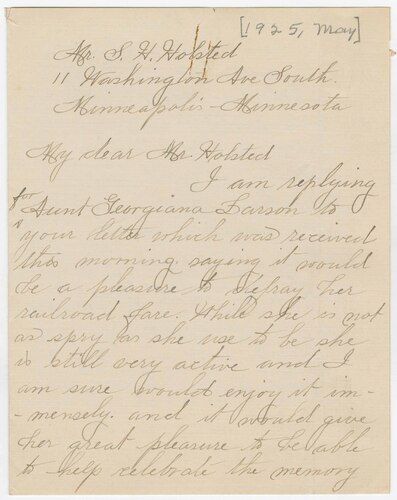 [1925, May]
Mr. S. H. Holsted
11 Washington Ave South.
Minneapolis - Minnesota
My dear Mr Holsted
I am replying
for Aunt Georgiana Larson to
your letter which was received
this morning. saying it would
be a pleasure to defray her
railroad fare. While she is not
as spry as she use to be she
is still very active and I
am sure would enjoy it im-
-mensely. and it would give
her great pleasure to be able
to help celebrate the memory